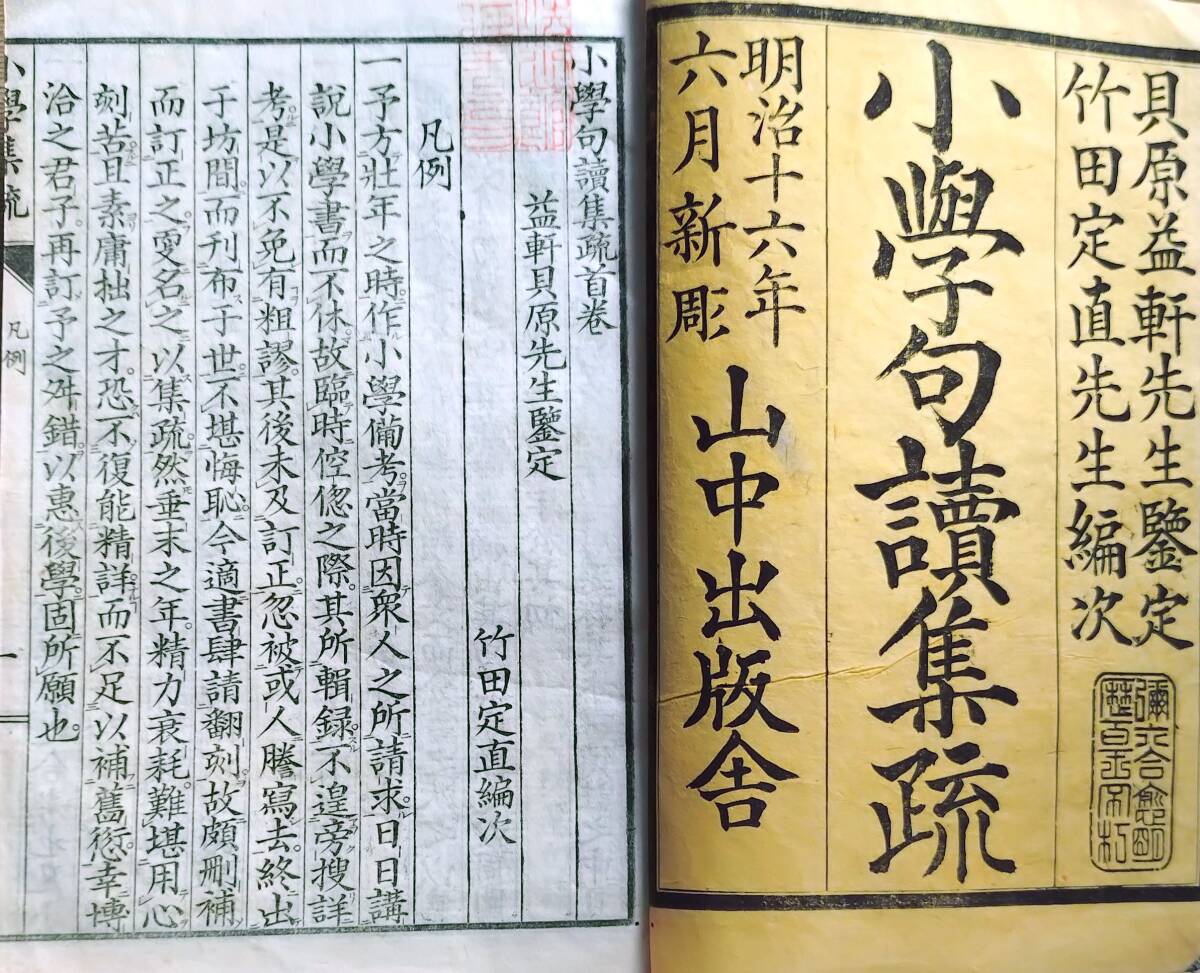 貝原益軒先生鑒定
竹田定直先生編次
小學句讀集疏
明治十六年
六月新彫
山中出版舍
小學句讀集疏首卷
益軒貝原先生鑒定
竹田定直編次
凡例
一予方壯年之時作小學備考當時因衆人之所請求日日講
說小學書而不休故臨時倥偬之際其所輯録不遑旁搜詳
考是以不免有粗謬其後未及訂正忽被或人謄寫去終出
于坊間而刊布于世不堪悔恥今適書肆請翻刻故頗刪補
而訂正之更名之以集疏然垂末之年精力衰耗難堪用心
刻苦且素庸拙之才恐不復能精詳而不足以補舊愆幸博
洽之君子再訂予之舛錯以惠後學固所願也
小學集疏
凡例
一